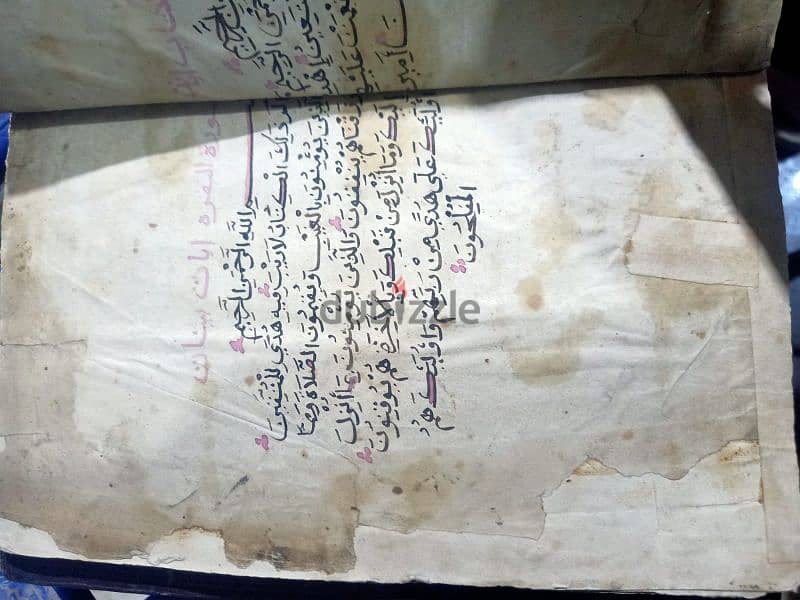 سورة البقره ايات بينات
بِسْمِ اللَّهِ الرَّحْمَنِ الرَّحِيمِ
الم ذَلِكَ الْكِتَابُ لَا رَيْبَ فِيهِ هُدًى لِلْمُتَّقِينَ
الَّذِينَ يُؤْمِنُونَ بِالْغَيْبِ وَيُقِيمُونَ الصَّلَاةَ وَمِمَّا
رَزَقْنَاهُمْ يُنْفِقُونَ وَالَّذِينَ يُؤْمِنُونَ بِمَا أُنْزِلَ
إِلَيْكَ وَمَا أُنْزِلَ مِنْ قَبْلِكَ وَبِالْآخِرَةِ هُمْ يُوقِنُونَ
أُولَئِكَ عَلَى هُدًى مِنْ رَبِّهِمْ وَأُولَئِكَ هُمُ
الْمُفْلِحُونَ
dubizzle